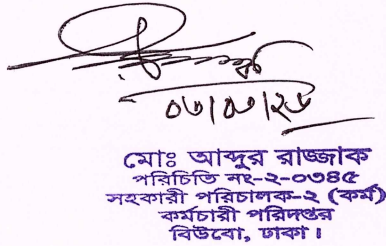 ০৩/০৩/২৬
মোঃ আব্দুর রাজ্জাক
পরিচিতি নং-২-০৩৪৫
সহকারী পরিচালক-২ (কর্ম)
কর্মচারী পরিদপ্তর
বিউবো, ঢাকা।